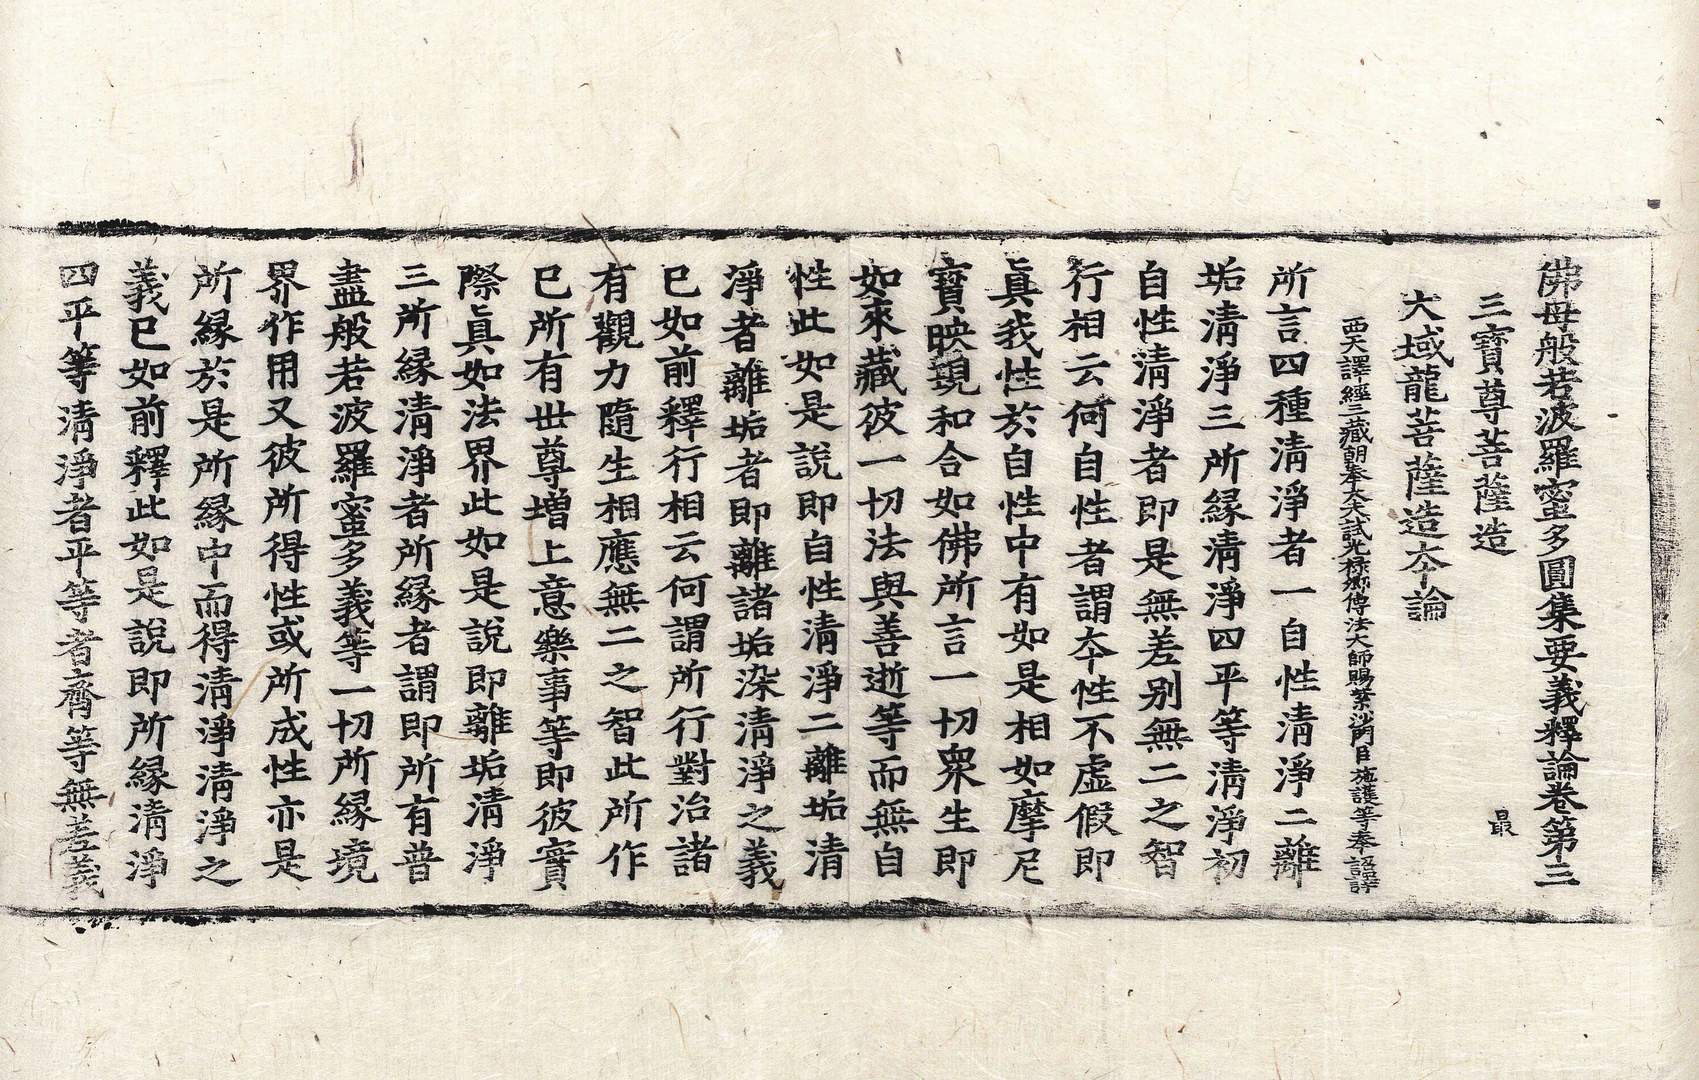 佛母般若波羅蜜多圓集要義釋論卷第三
三寶尊菩薩造
最
大域龍菩薩造夲論
西天譯經三藏朝奉大夫試光祿卿傳法大師賜紫沙門臣施護等奉 詔譯
所言四種清淨者一自性清淨二離
垢清淨三所縁清淨四平等清淨初
自性清淨者即是無差别無二之智
行相云何自性者謂夲性不虚假即
眞我性於自性中有如是相如摩尼
寶映現和合如佛所言一切衆生即
如來藏彼一切法與善逝等而無自
性此如是說即自性清淨二離垢清
淨者離垢者即離諸垢染清淨之義
已如前釋行相云何謂所行對治諸
有觀力隨生相應無二之智此所作
已所有世尊增上意樂事等即彼實
際眞如法界此如是說即離垢清淨
三所縁清淨者所縁者謂即所有普
盡般若波羅蜜多義等一切所縁境
界作用又彼所得性或所成性亦是
所縁於是所縁中而得清淨清淨之
義已如前釋此如是說即所縁清淨
四平等清淨者平等者齊等無差義